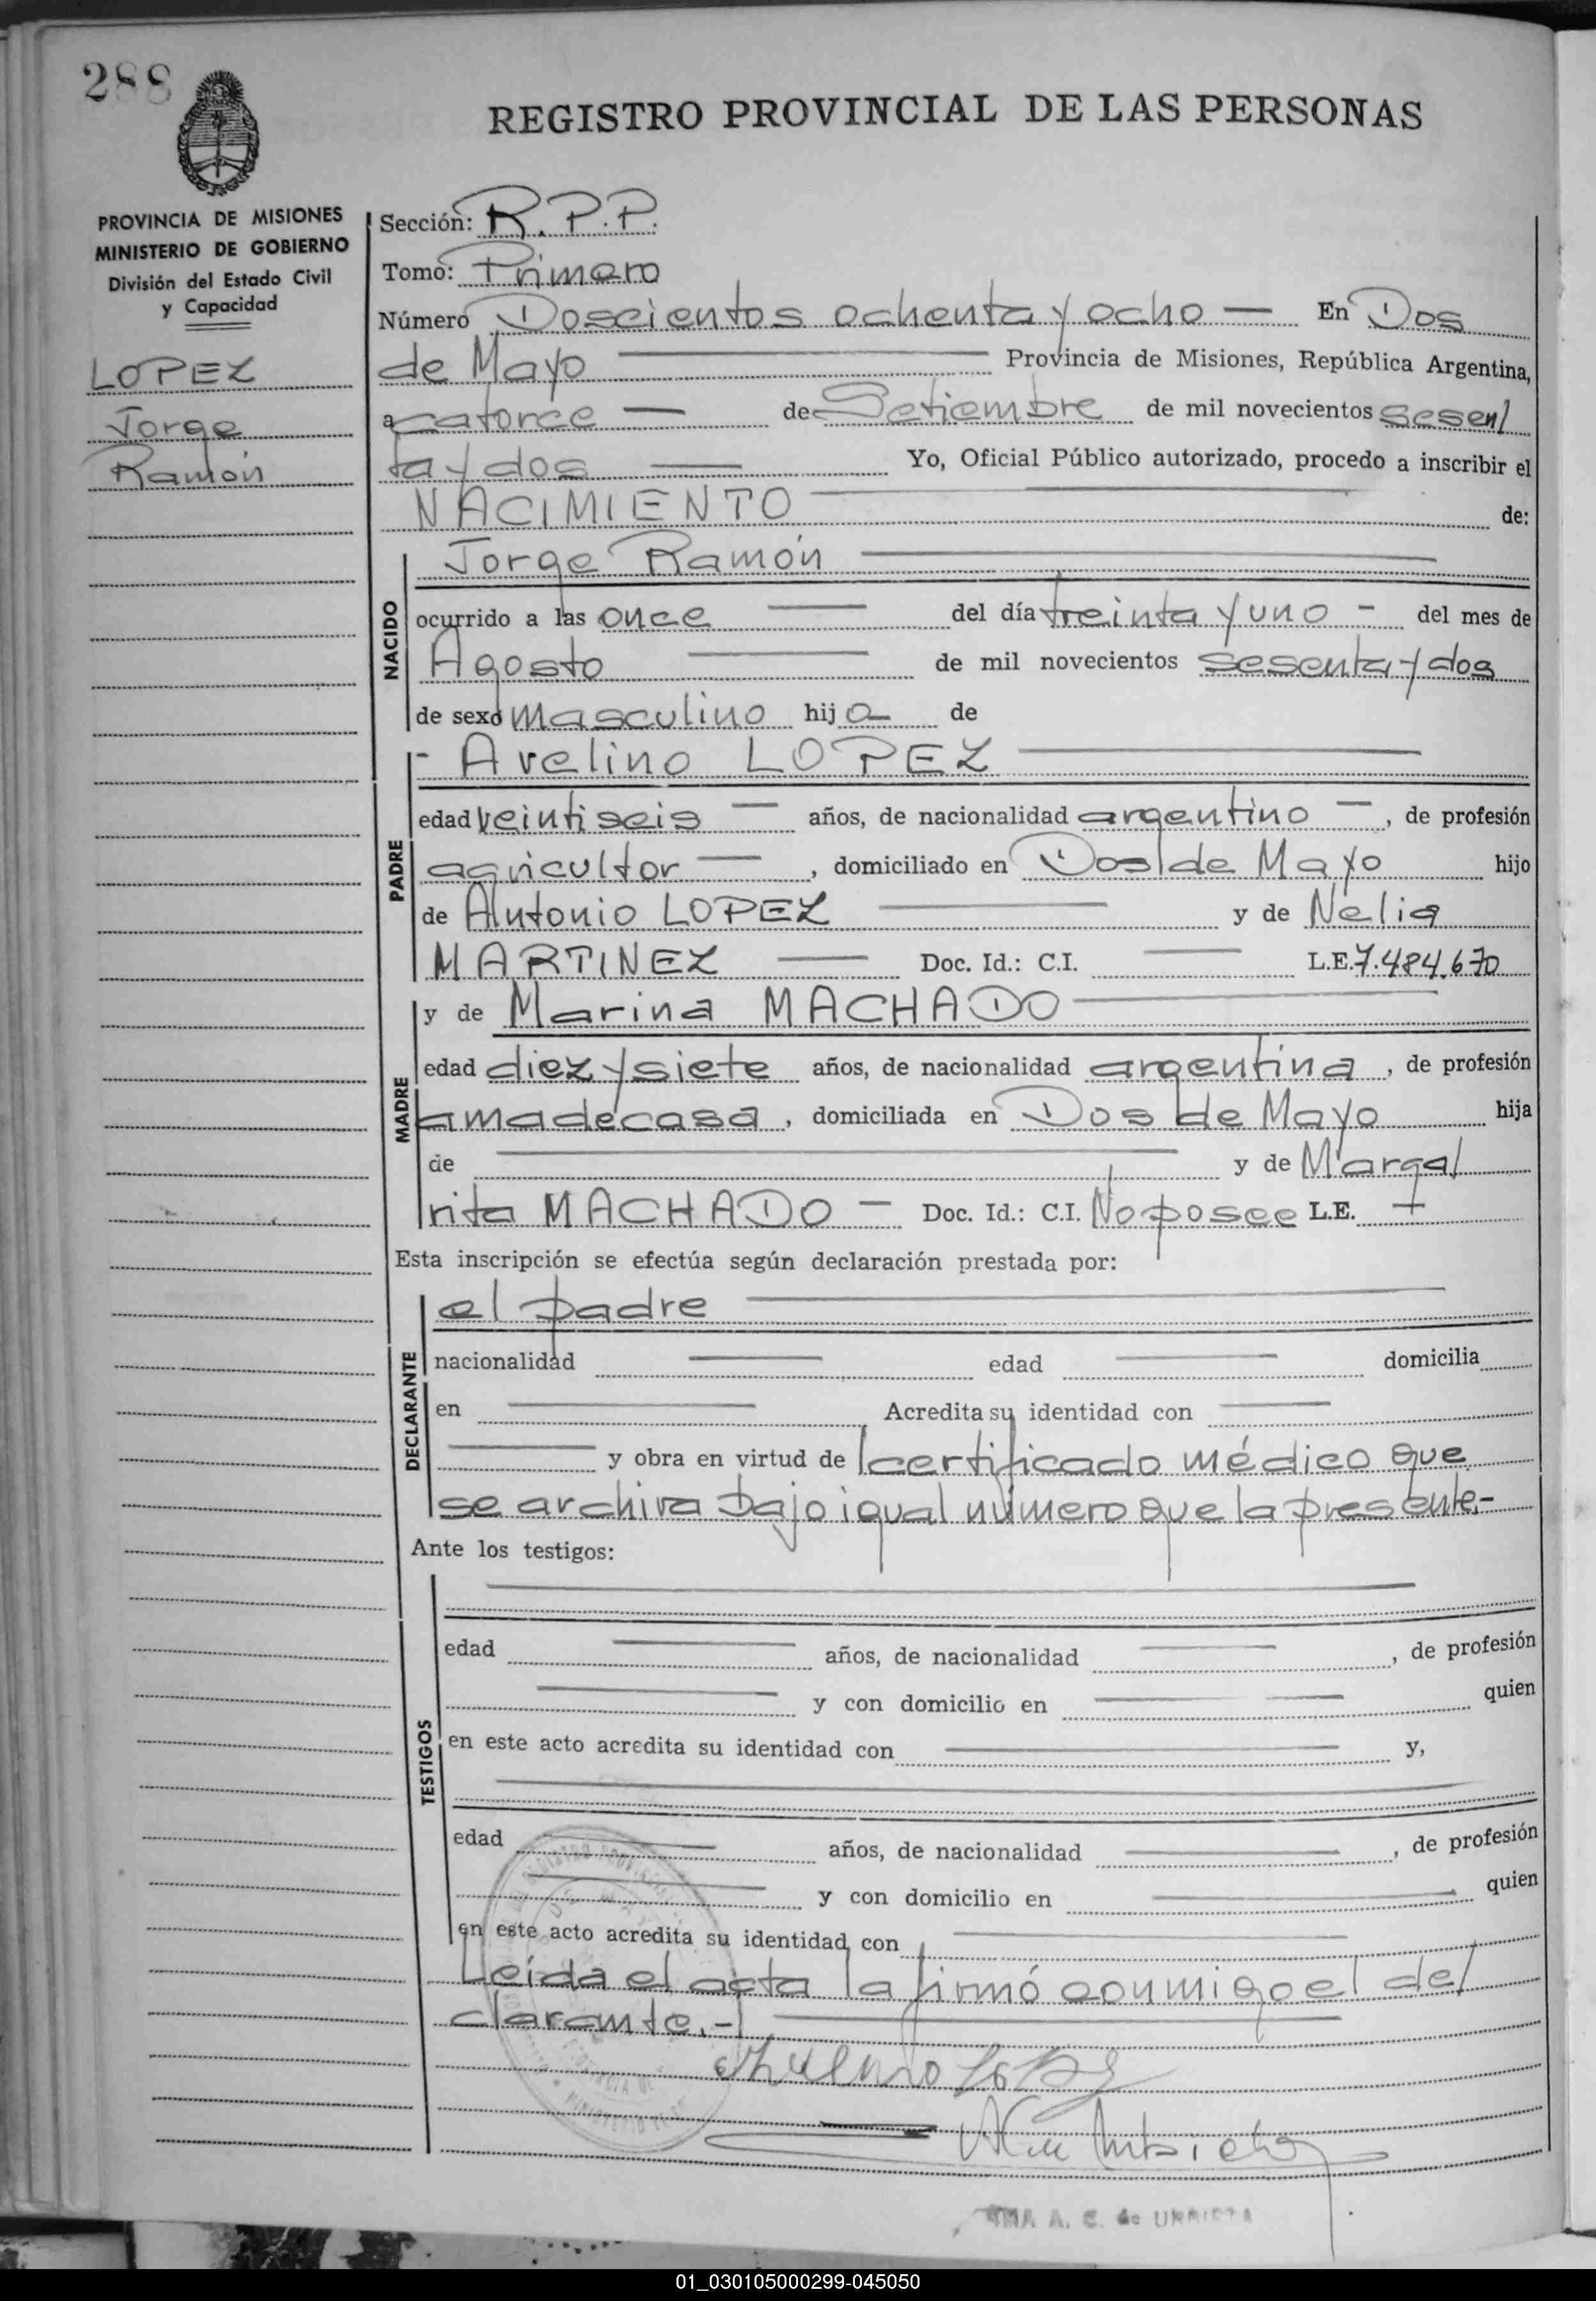 288
REGISTRO PROVINCIAL DE LAS PERSONAS
PROVINCIA DE MISIONES
MINISTERIO DE GOBIERNO
División del Estado Civil
y Capacidad
LOPEZ
Jorge
Ramón
Sección: R.P.P.
Tomo: Primero
Número Doscientos ochenta y ocho — En Dos
de Mayo — Provincia de Misiones, República Argentina,
a catorce — de Setiembre de mil novecientos sesen/
ta y dos — Yo, Oficial Público autorizado, procedo a inscribir el
NACIMIENTO — de:
NACIDO
Jorge Ramón —
ocurrido a las once — del día treinta y uno - del mes de
Agosto — de mil novecientos sesenta y dos
de sexo masculino hijo de
PADRE
- Avelino LOPEZ —
edad veintiseis — años, de nacionalidad argentino —, de profesión
agricultor —, domiciliado en Dos/de Mayo hijo
de Antonio LOPEZ — y de Nelia
MARTINEZ — Doc. Id.: C.I. — L.E. 7.484.670
MADRE
y de Marina MACHADO —
edad diez y siete años, de nacionalidad argentina, de profesión
ama de casa, domiciliada en Dos de Mayo hija
de — y de Marga/
rita MACHADO — Doc. Id.: C.I. No posee L.E. +
Esta inscripción se efectúa según declaración prestada por:
DECLARANTE
el padre —
nacionalidad — edad — domicilia
en — Acredita su identidad con —
— y obra en virtud de /certificado médico que
se archiva bajo igual número que la presente.-
Ante los testigos:
TESTIGOS
edad — años, de nacionalidad —, de profesión
— y con domicilio en — quien
en este acto acredita su identidad con — y,
edad — años, de nacionalidad —, de profesión
— y con domicilio en — quien
en este acto acredita su identidad con —
Leída el acta la firmó conmigo el de/
clarante.- —
A. C. de URRIETA
01_030105000299-045050